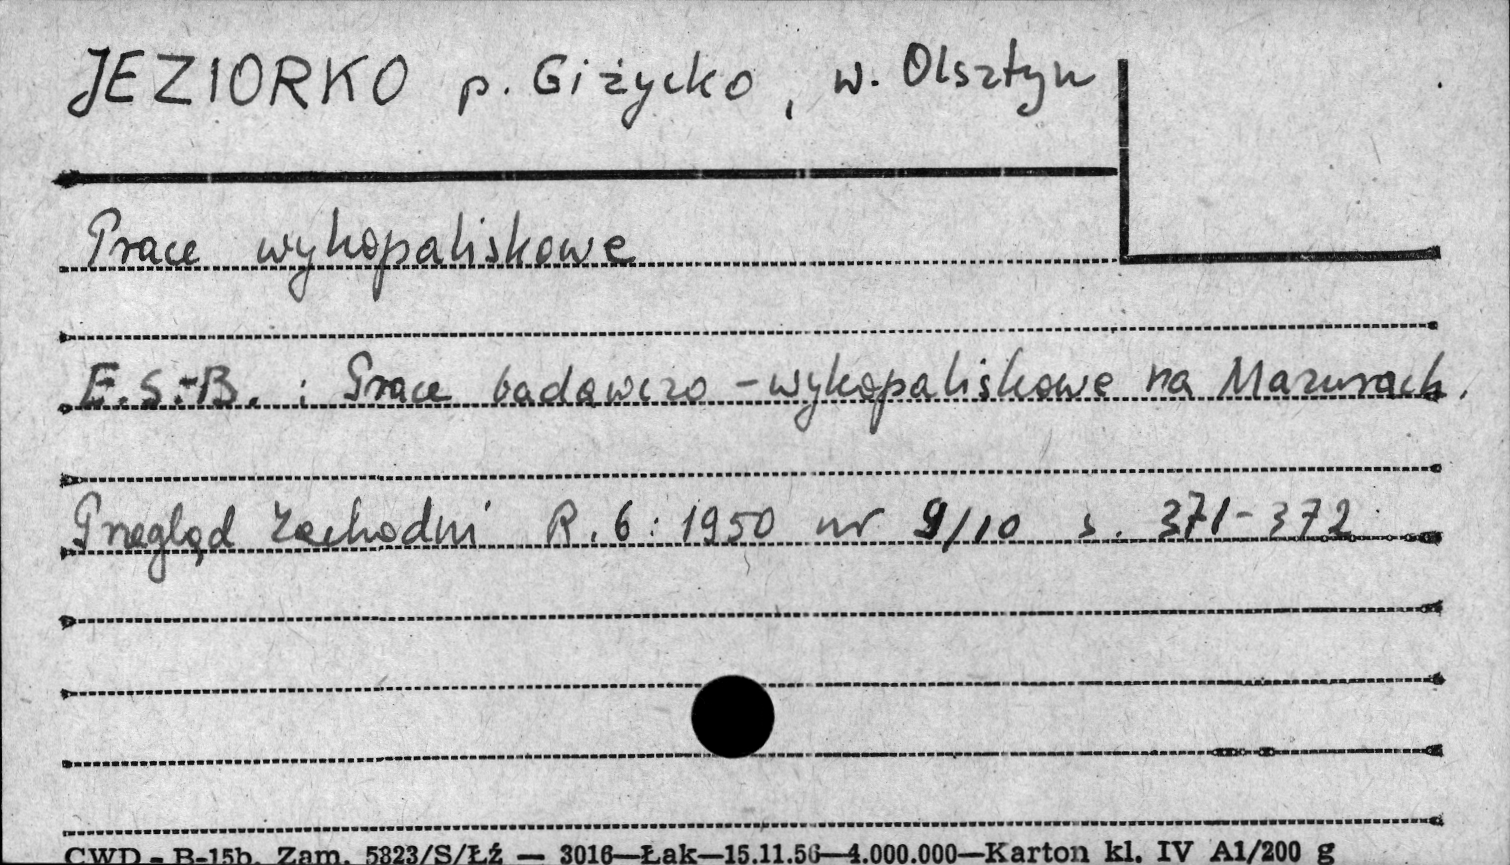 JEZIORKO p. Giżycko, w. Olsztyn
Prace wykopaliskowe
E.S.-B. : Prace badawczo-wykopaliskowe na Mazurach.
Przegląd Zachodni R.6: 1950 nr 9/10 s. 371-372
CWD - B-15b. Zam. 5823/S/ŁŹ — 3016—Łak—15.11.56—4.000.000—Karton kl. IV A1/200 g